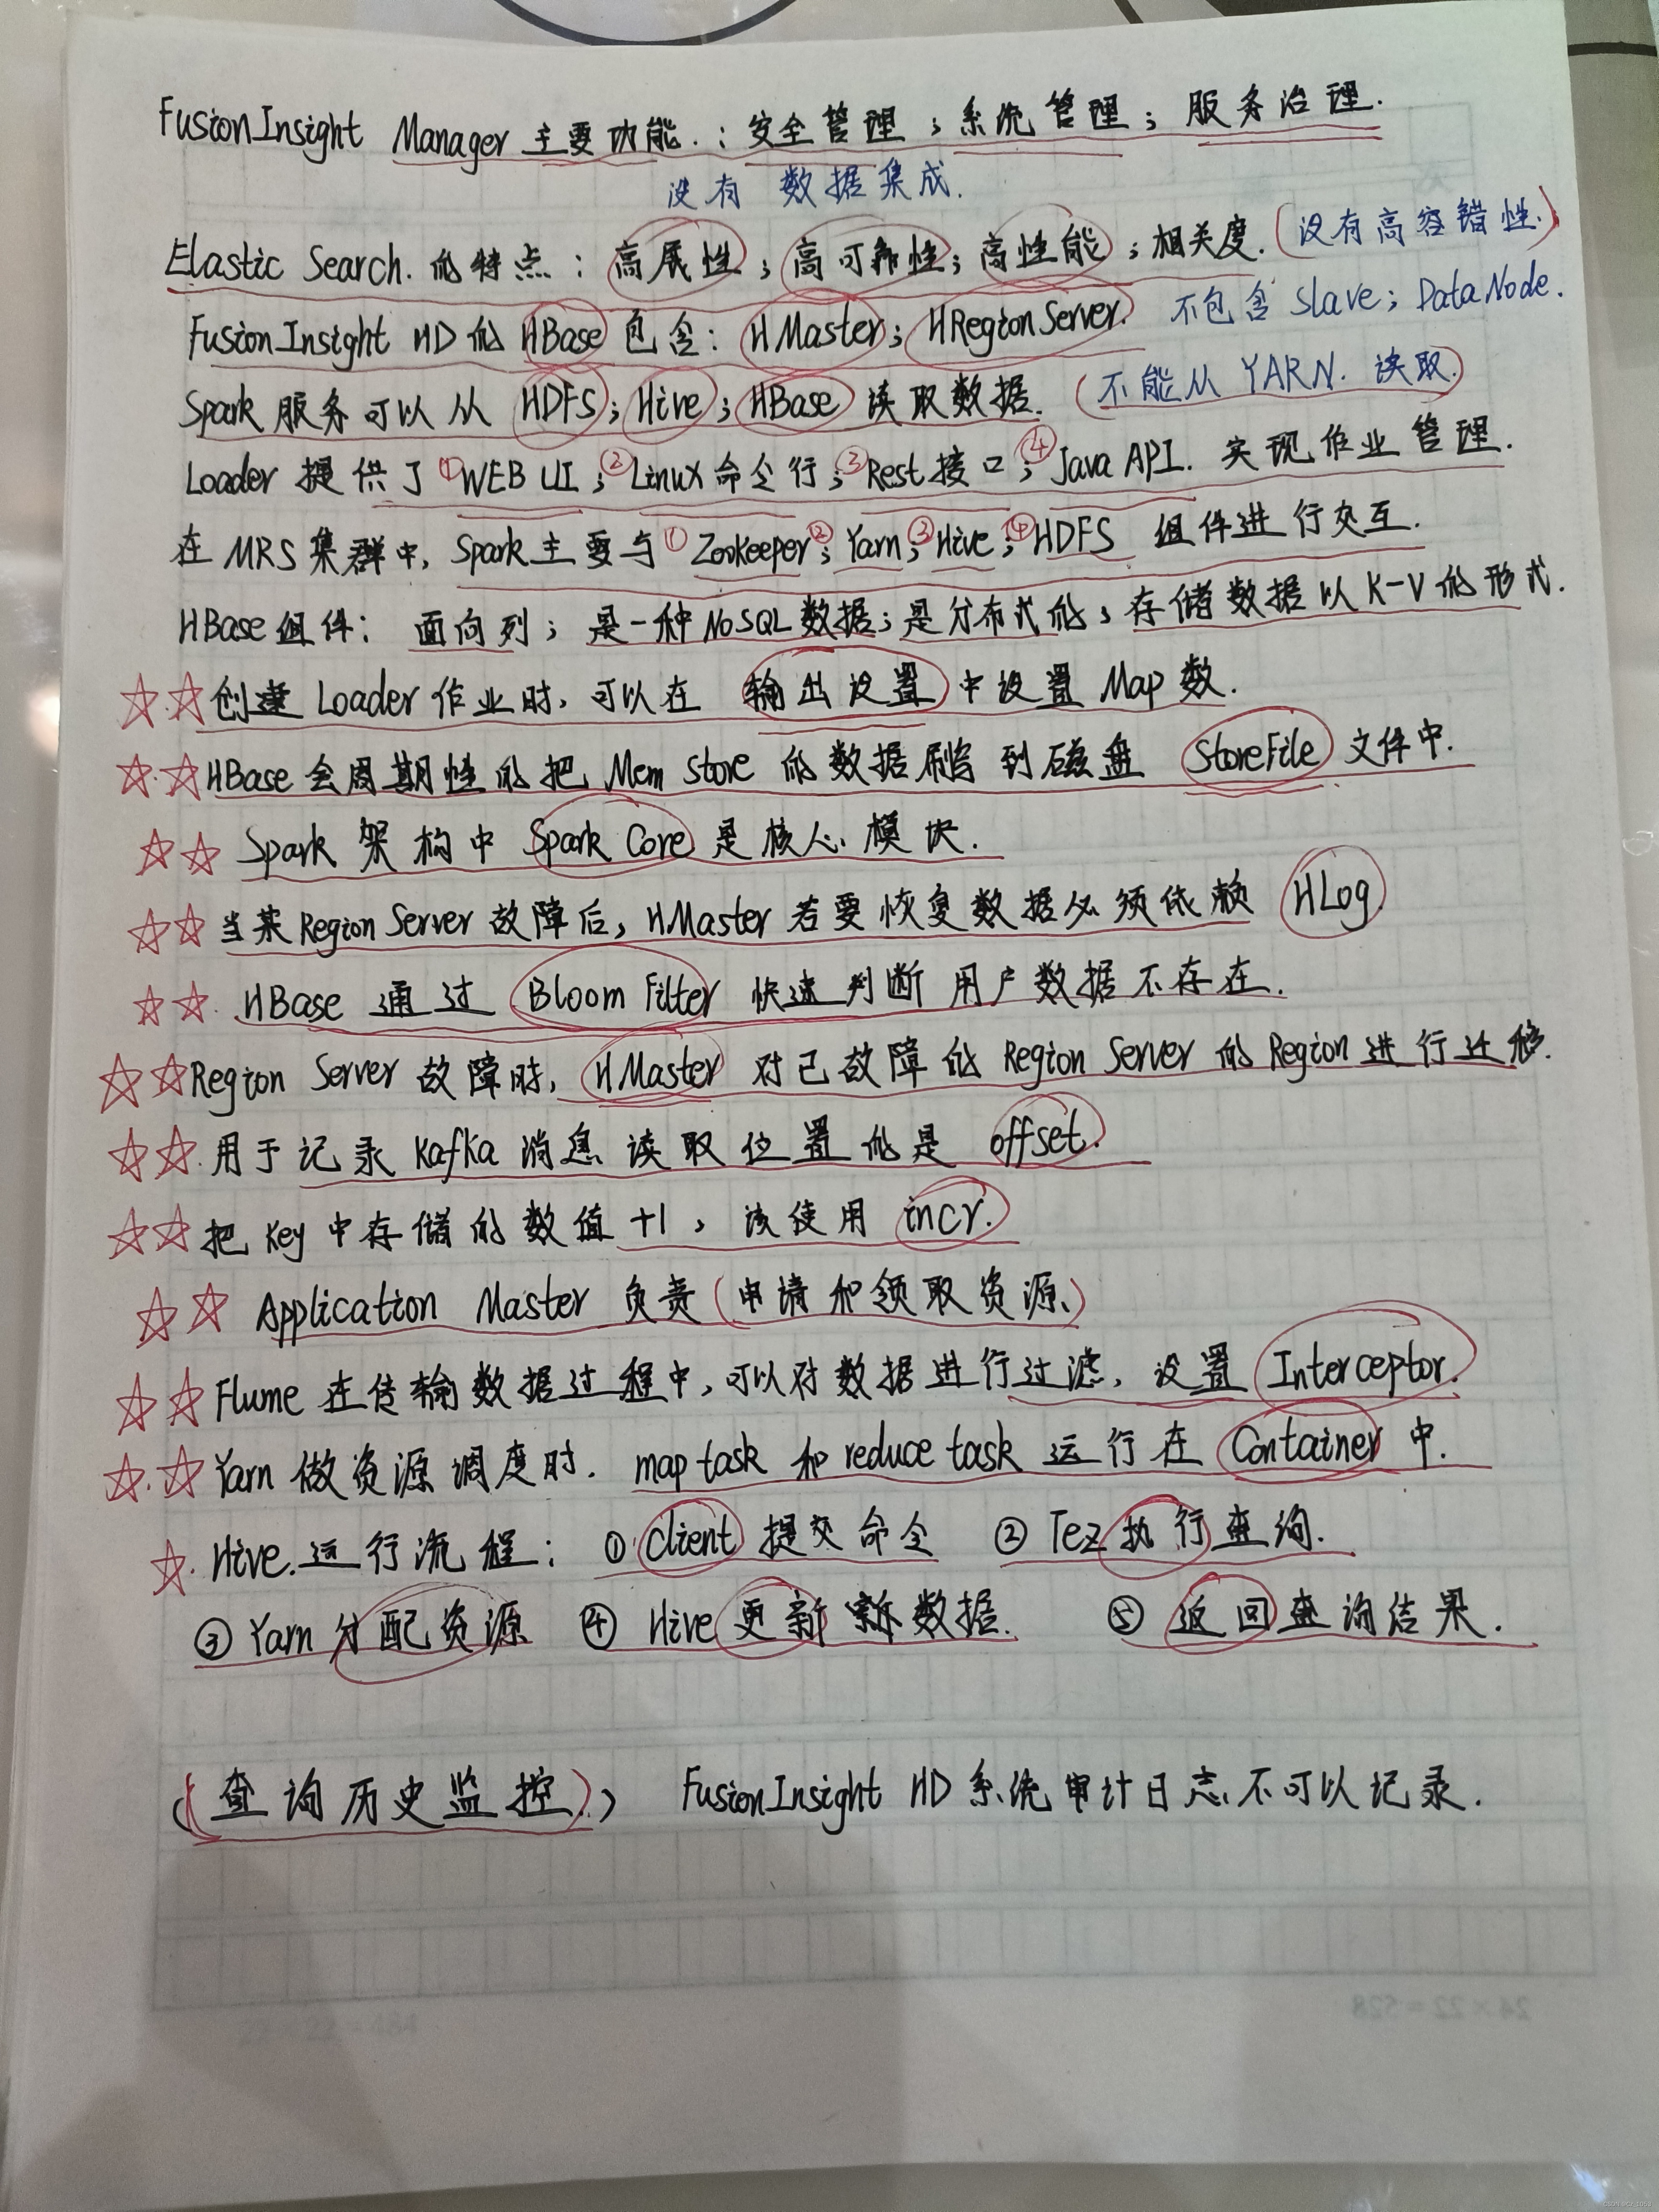 FusionInsight Manager 主要功能.：安全管理；系统管理；服务治理.
没有 数据集成.
Elastic Search. 的特点：高展性；高可靠性；高性能；相关度.（没有高容错性.）
FusionInsight HD的 HBase 包含：HMaster；HRegionServer. 不包含 Slave；DataNode.
Spark 服务可以从 HDFS；Hive；HBase 读取数据.（不能从 YARN. 读取.）
Loader 提供了①WEB UI；②Linux命令行；③Rest接口；④Java API. 实现作业管理.
在MRS集群中，Spark主要与①Zookeeper；②Yarn；③Hive；④HDFS 组件进行交互.
HBase组件：面向列；是一种NoSQL数据；是分布式的；存储数据以K-V的形式.
☆☆创建 Loader 作业时，可以在 输出设置 中设置 Map 数.
☆☆HBase会周期性的把 Mem Store 的数据刷写到磁盘 StoreFile 文件中.
☆☆ Spark 架构中 Spark Core 是核心模块.
☆☆ 当某Region Server故障后，HMaster若要恢复数据必须依赖 HLog.
☆☆. HBase 通过 Bloom Filter 快速判断用户数据不存在.
☆☆Region Server故障时，HMaster 对已故障的Region Server的Region进行迁移.
☆☆.用于记录 Kafka 消息读取位置的是 offset.
☆☆把 key 中存储的数值 +1，该使用 incr.
☆☆ Application Master 负责（申请和领取资源、）
☆☆Flume 在传输数据过程中，可以对数据进行过滤，设置 Interceptor.
☆.☆Yarn 做资源调度时. map task 和 reduce task 运行在 Container 中.
☆. Hive.运行流程：①Client 提交命令 ② Tez执行查询.
③Yarn分配资源 ④ Hive更新 数据. ⑤ 返回查询结果.
（查询历史监控.） FusionInsight HD系统审计日志不可以记录.
24×22=528
22×22=484